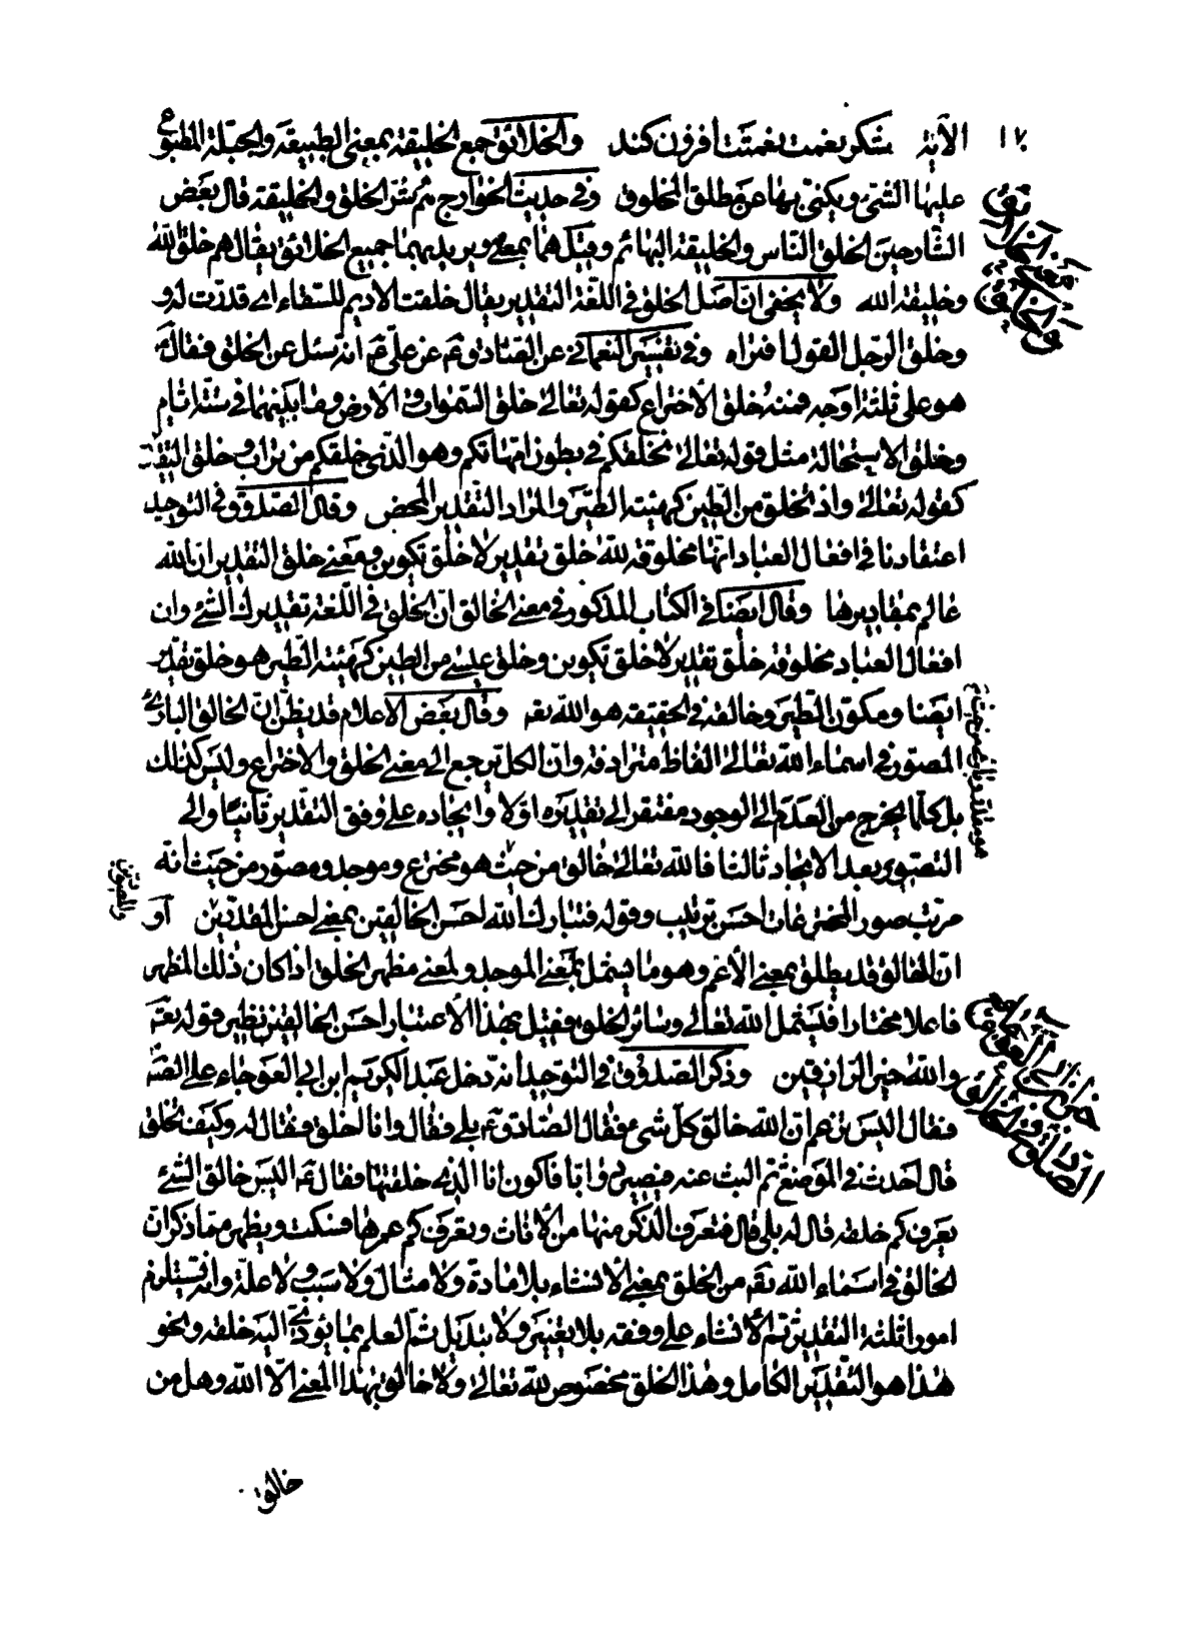 ١٧ الآية شكر نعمت نعمتت افزون كند والخلائق جمع الخليقة بمعنى الطبيعة والجبلة المطبوع
عليها الشئ ويكنى بها عن مطلق المخلوق وفي حديث الخوارج هم شر الخلق والخليقة قال بعض
الشارحين الخلق الناس والخليقة البهائم وقيل هما بمعنى ويريد بهما جميع الخلائق يقال هم خلق الله
وخليقة الله ولا يخفى ان اصل الخلق في اللغة التقدير يقال خلقت الاديم للسقاء اى قدرت له و
وخلق الرجل القول افتراه وفي تفسير النعماني عن الصادق عم عن علي عم انه سئل عن الخلق فقال
هو على ثلثة اوجه فمنه خلق الاختراع كقوله تعالى خلق السموات والأرض وما بينهما في ستة ايام
وخلق الاستحالة مثل قوله تعالى يخلقكم في بطون امهاتكم وهو الذى خلقكم من تراب وخلق التقدير
كقوله تعالى واذ تخلق من الطين كهيئة الطير والمراد التقدير المحض وقال الصدوق في التوحيد
اعتقادنا في افعال العباد انها مخلوقة لله خلق تقدير لا خلق تكوين ومعنى خلق التقدير ان الله
عالم بمقاديرها وقال ايضا في الكتاب المذكور في معنى الخالق ان الخلق في اللغة تقديرك الشئ وان
افعال العباد مخلوقة خلق تقدير لا خلق تكوين وخلق عيسى من الطين كهيئة الطير هو خلق تقدير
ايضا ومكون الطير وخالقه في الحقيقة هو الله تعه وقال بعض الاعلام قد يظن ان الخالق البارئ
المصور في اسماء الله تعالى الفاظ مترادفة وان الكل يرجع الى معنى الخلق والاختراع وليس كذلك
بل كلما يخرج من العدم الى الوجود مفتقر الى تقديره اولا وايجاده على وفق التقدير ثانيا والى
التصوير بعد الايجاد ثالثا فالله تعالى خالق من حيث هو مخترع وموجد ومصور من حيث انه
مرتب صور المخترعات احسن ترتيب وقوله فتبارك الله احسن الخالقين بمعنى احسن المقدرين أو
ان الخالق قد يطلق بمعنى الأعم وهو ما يشمل بمعنى الموجد ولمعنى مظهر الخلق اذا كان ذلك المظهر
فاعلا مختارا فيشمل الله تعالى وسائر الخلق فقيل بهذا الأعتبار احسن الخالقين نظير قوله تعه
والله خير الرازقين وذكر الصدوق في التوحيد انه دخل عبد الكريم ابن ابى العوجاء على الصه
فقال اليس تزعم ان الله خالق كل شئ فقال الصادق عم بلى فقال وانا اخلق فقال له وكيف تخلق
قال احدث في الموضع ثم البث عنه فيصير دوابا فاكون انا الذى خلقتها فقال عم اليس خالق الشئ
يعرف كم خلقه قال له بلى قال فتعرف الذكر منها من الأناث وتعرف كم عمرها فسكت ويظهر مما ذكر ان
الخالق في اسماء الله تعه من الخلق بمعنى الأنشاء بلا مادة ولا مثال ولا سبب ولا علة وانه يستلزم
امورا ثلثة التقدير ثم الأنشاء على وفقه بلا تغيير ولا تبديل ثم العلم بما يؤدى اليه خلقه ونحو
هذا هو التقدير الكامل وهذا الخلق مخصوص لله تعالى ولا خالق بهذا المعنى الا الله وهل من
خالق